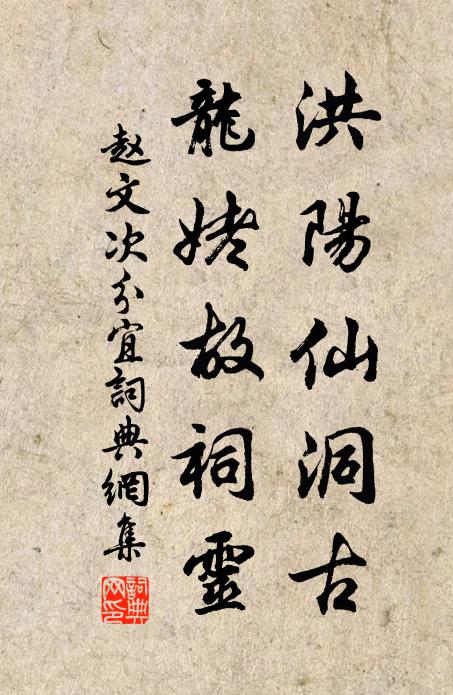 洪陽仙洞古
龍姥故祠靈
赵文次分宜詞典網集
詞典网印